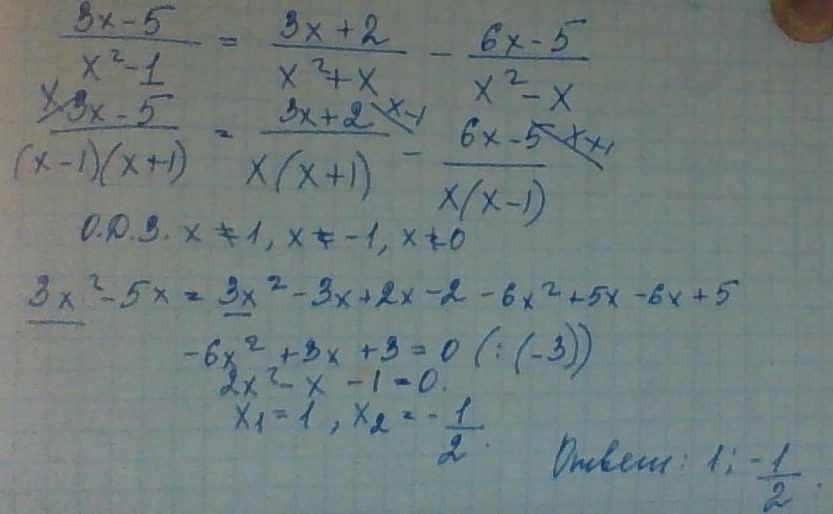 (3x-5)/(x²-1) = (3x+2)/(x²+x) - (6x-5)/(x²-x)
x\ (3x-5)/((x-1)(x+1)) = (3x+2)/(x(x+1)) \x-1 - (6x-5)/(x(x-1)) \x+1
О.Д.З. x≠1, x≠-1, x≠0
3x²-5x = 3x²-3x+2x-2-6x²+5x-6x+5
-6x²+3x+3=0 (:(-3))
2x²-x-1=0.
x₁=1, x₂=-1/2.
Ответ: 1; -1/2.